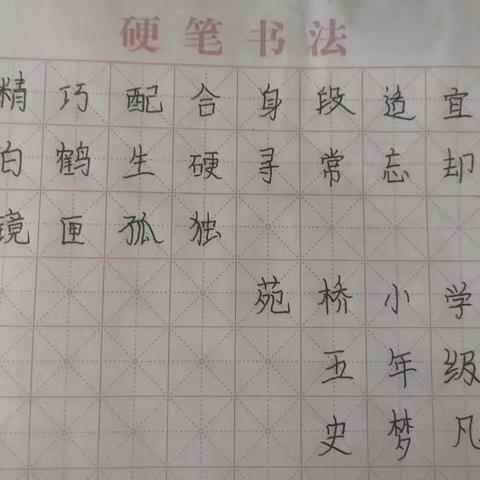 硬笔书法
精巧配合身段适宜
白鹤生硬寻常忘却
镜匣孤独
苑桥小学
五年级
史梦凡